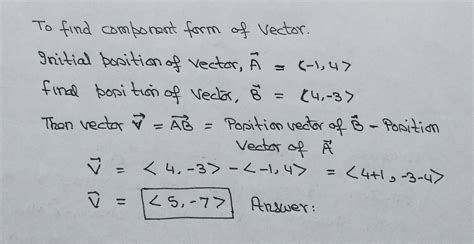 To find component form of vector.
Initial position of vector, A⃗ = <-1,4>
final position of vector, B⃗ = <4,-3>
Then vector V⃗ = AB⃗ = Position vector of B⃗ - Position
Vector of A⃗
V⃗ = <4,-3> - <-1,4> = <4+1,-3-4>
V⃗ = <5,-7> Answer: